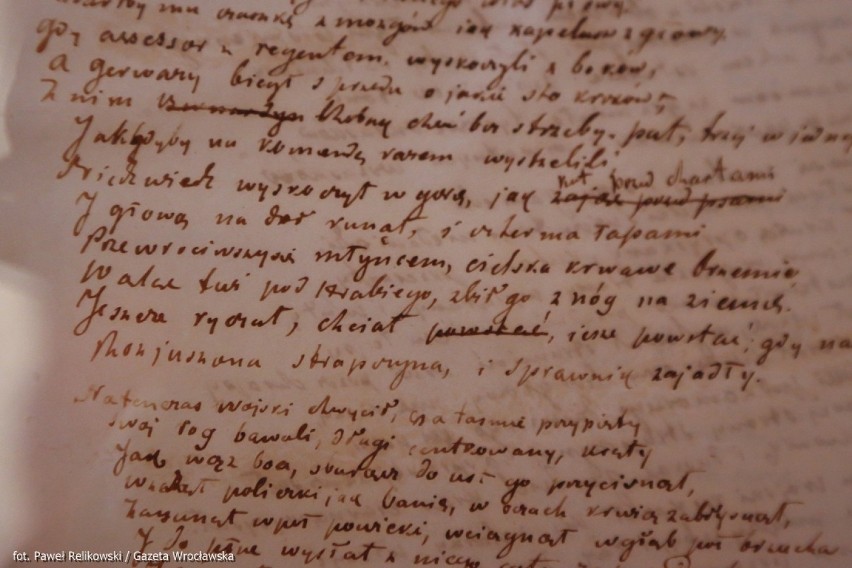 mu czaszkę z mózgów jak kapelusz z głowy.
gdy assessor z regentem wyskoczyli z boków,
a gerwazy bieżył z przodu o jakie sto kroków;
z nim Robak choć bez strzelby. put, trzej w jednej
Jakgdyby na komendę razem wystrzelili
Niedźwiedź wyskoczył w górę, jak kot przed chartami
zając przed psami
I głową na dół runął, i czterma łapami
Przewróciwszysię młyńcem, cielska krwawe brzemię
waląc tuż pod Hrabiego, zbił go z nóg na ziemię.
Jeszcze ryczał, chciał powstać, jeszcze powstać; gdy na
Rozjuszona strapczyna, i sprawnik zajadły.
Natenczas wojski chwycił, na taśmie przypięty
swój róg bawoli, długi cętkowany, kręty
Jak wąż boa, oburącz do ust go przycisnął,
wzdął policzki jak banię, w oczach krwią zabłysnął,
zasunął wpół powieki, wciągnął wgłąb pół brzucha
I do płuc wysłał z niego
fot. Paweł Relikowski / Gazeta Wrocławska